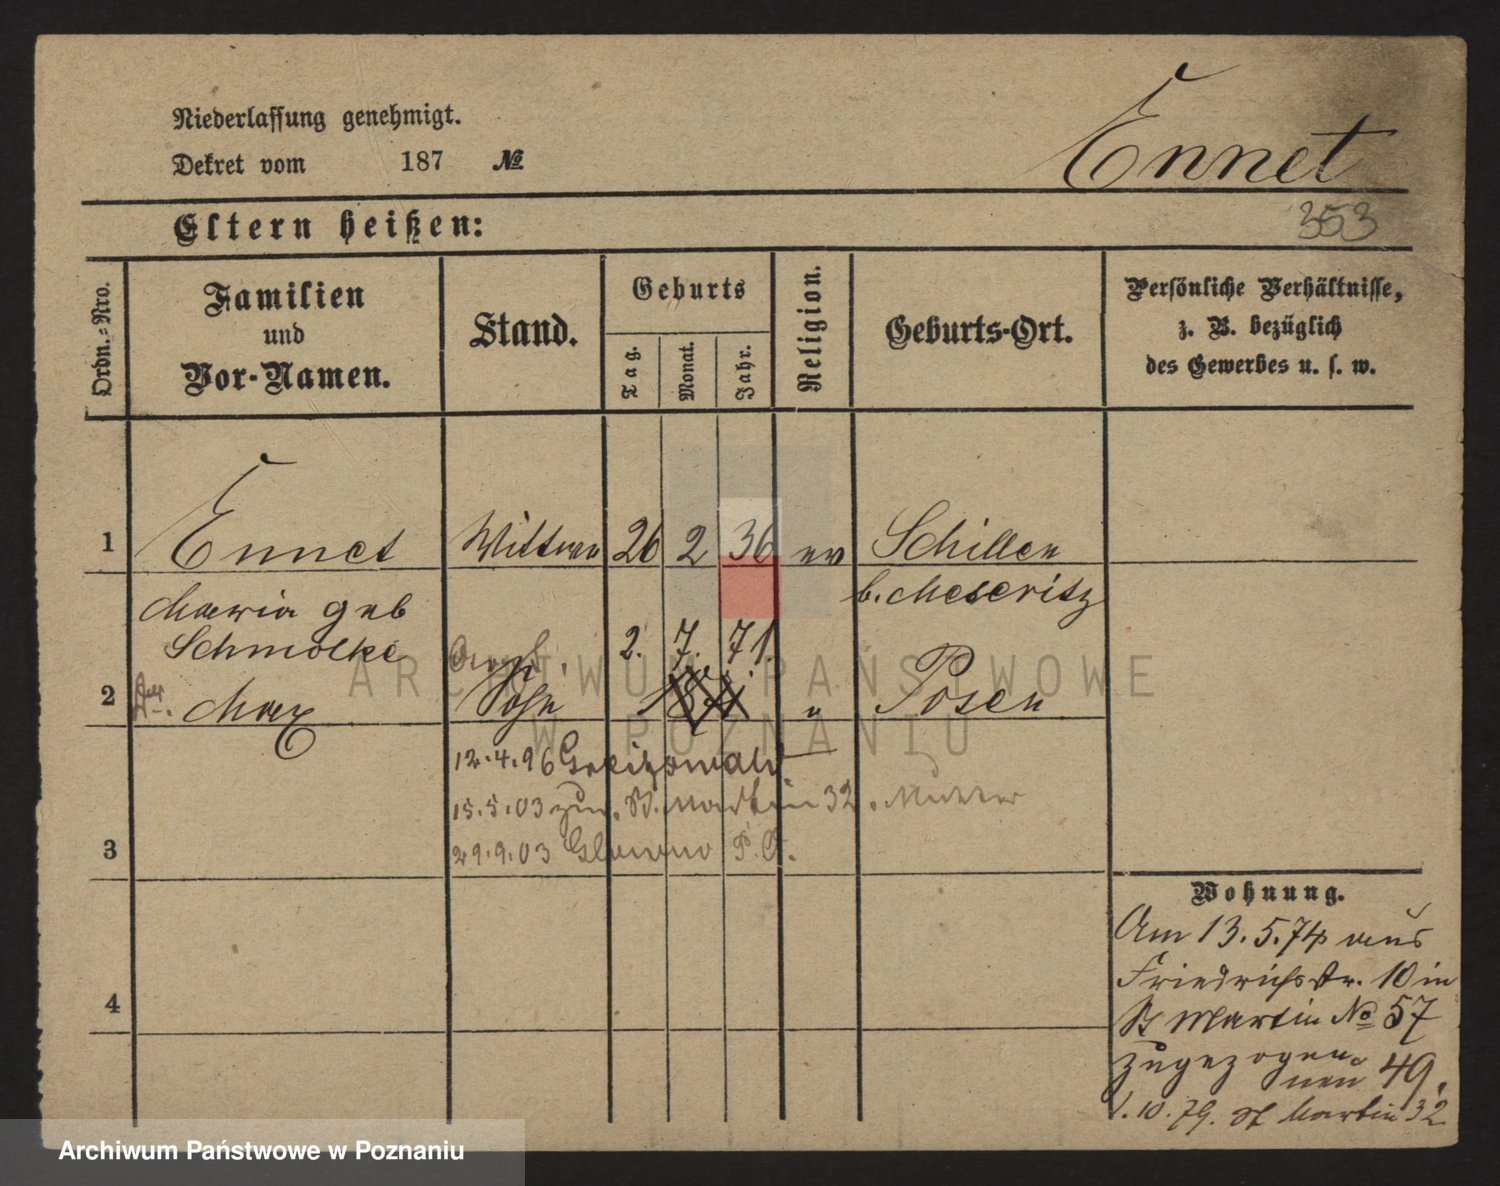 Niederlassung genehmigt.
Dekret vom 187 №
Ennet
353
Eltern heißen:
Ordn.-Nro.
Familien und Vor-Namen.
Stand.
Geburts
Tag.
Monat.
Jahr.
Religion.
Geburts-Ort.
Persönliche Verhältnisse,
z. B. bezüglich
des Gewerbes u. s. w.
1 Ennet Wittwe 26 2 36 ev Schillen
b. Meseritz
Maria geb
Schmolke
2. 7. 71.
2 Max Sohn 1871 " Posen
12.4.96 Greifswald
15.5.03 zur. St. Martin 32. Mutter
3 29.9.03 Glowno P. O.
4
Wohnung.
Am 13.5.74 aus
Friedrichstr. 10 in
St Martin No 57
zugezogen
neu 49.
1.10.79. St Martin 32
ARCHIWUM PAŃSTWOWE
W POZNANIU
Archiwum Państwowe w Poznaniu